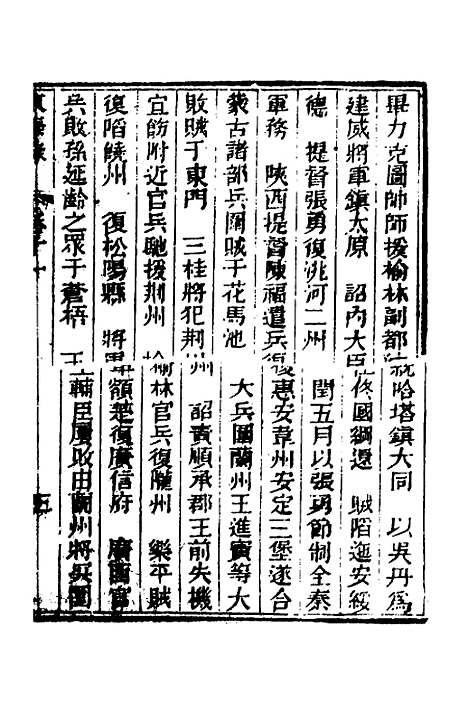 畢力克圖帥師援榆林副都統哈塔鎮大同　以吳丹爲
建威將軍鎮太原　詔內大臣佟國綱還　賊陷延安綏
德　提督張勇復洮河二州　閏五月以張勇節制全秦
軍務　陝西提督陳福遣兵復惠安韋州安定三堡遂合
蒙古諸部兵圍賊于花馬池　大兵圍蘭州王進寶等大
敗賊于東門　三桂將犯荆州　詔責順承郡王前失機
宜飭附近官兵馳援荆州　榆林官兵復隴州　樂平賊
復陷饒州　復松陽縣　將軍額楚復廣信府　廣西官
兵敗孫延齡之眾于蒼梧　王輔臣屢敗由蘭州將兵圍